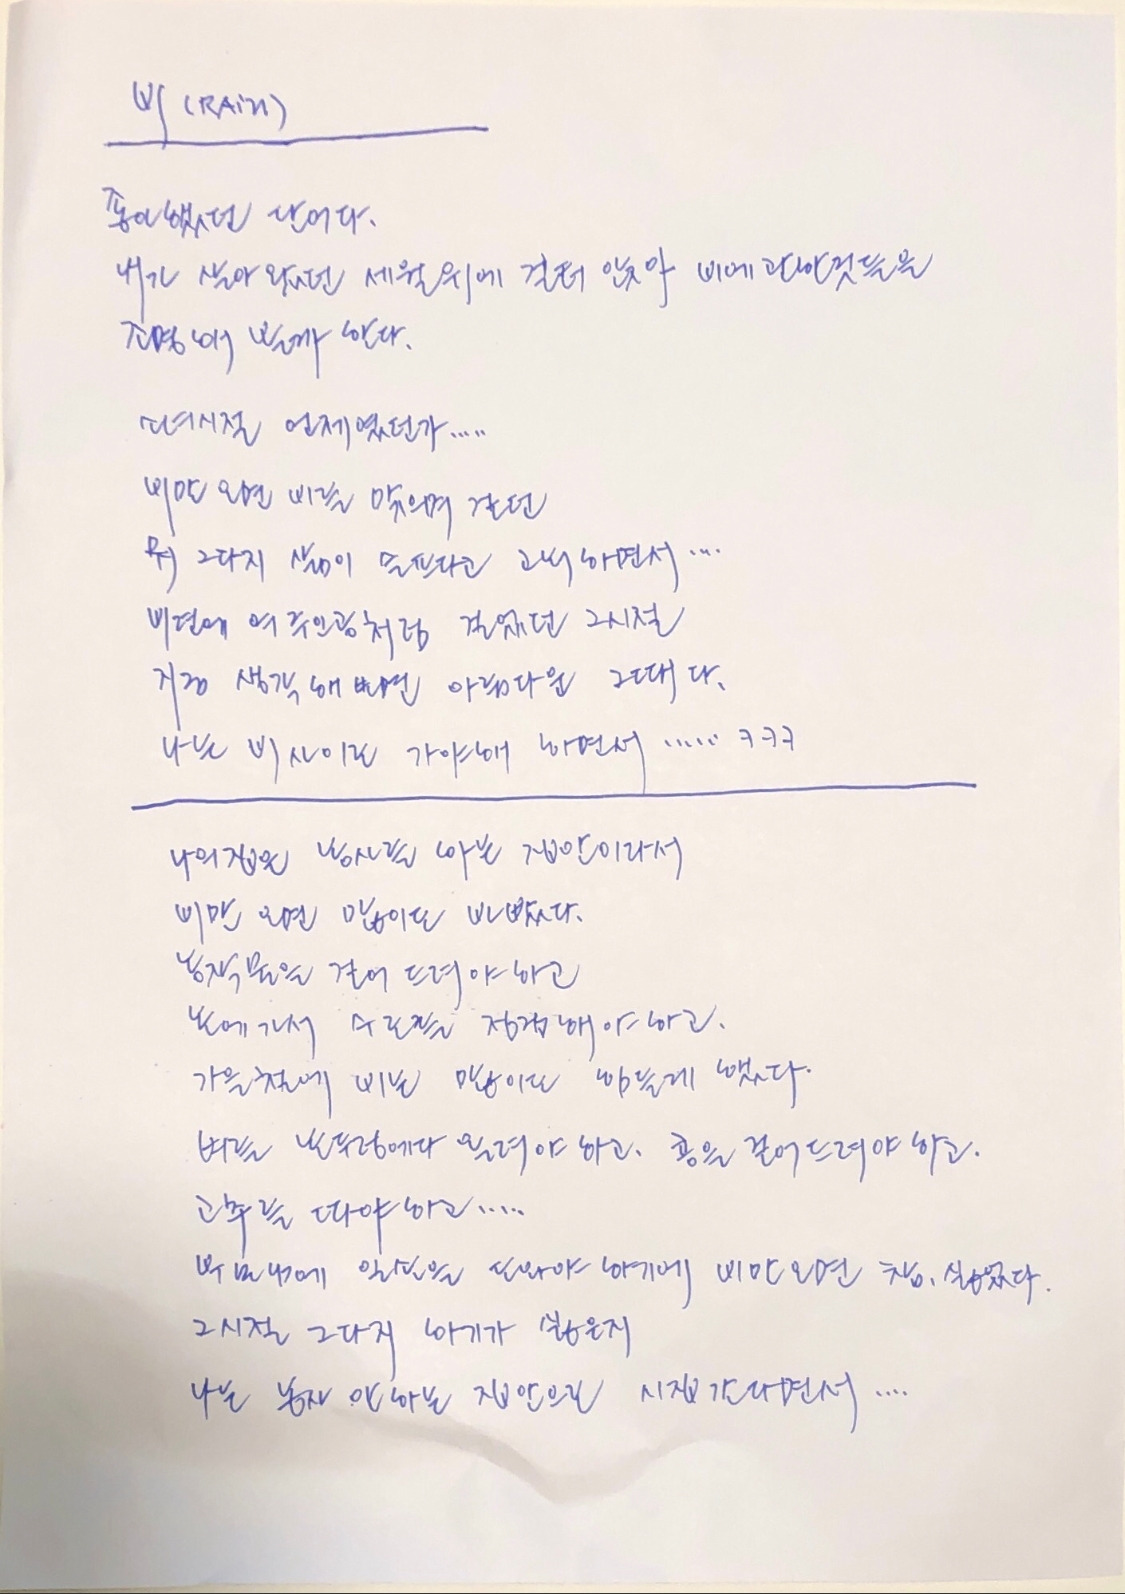 비 (RAin)
좋아했던 단어다.
내가 살아 왔던 세월위에 걸터 앉아 비에관한것들을
조명해 볼까 한다.
소녀시절 언제였던가.....
비만 오면 비를 맞으며 걷던
뭐 그다지 삶이 슬프다고 고뇌하면서....
비련에 여주인공처럼 걸었던 그시절
지금 생각해보면 아름다운 그때다.
나는 비사이로 가야해 하면서 ..... ㅋㅋㅋ
나의집은 농사를 하는 집안이라서
비만 오면 많이도 바빴다.
농작물을 걷어 드려야하고
논에가서 수로를 점검해야하고.
가을철에 비는 많이도 힘들게 했다.
벼를 논두렁에다 올려야하고. 콩을 걷어드려야하고.
고추를 따야하고.....
부모님에 일손을 도와야 하기에 비만오면 참. 싫었다.
그시절 그다지 하기가 싫은지
나는 농사 안하는 집안으로 시집간다면서 ....